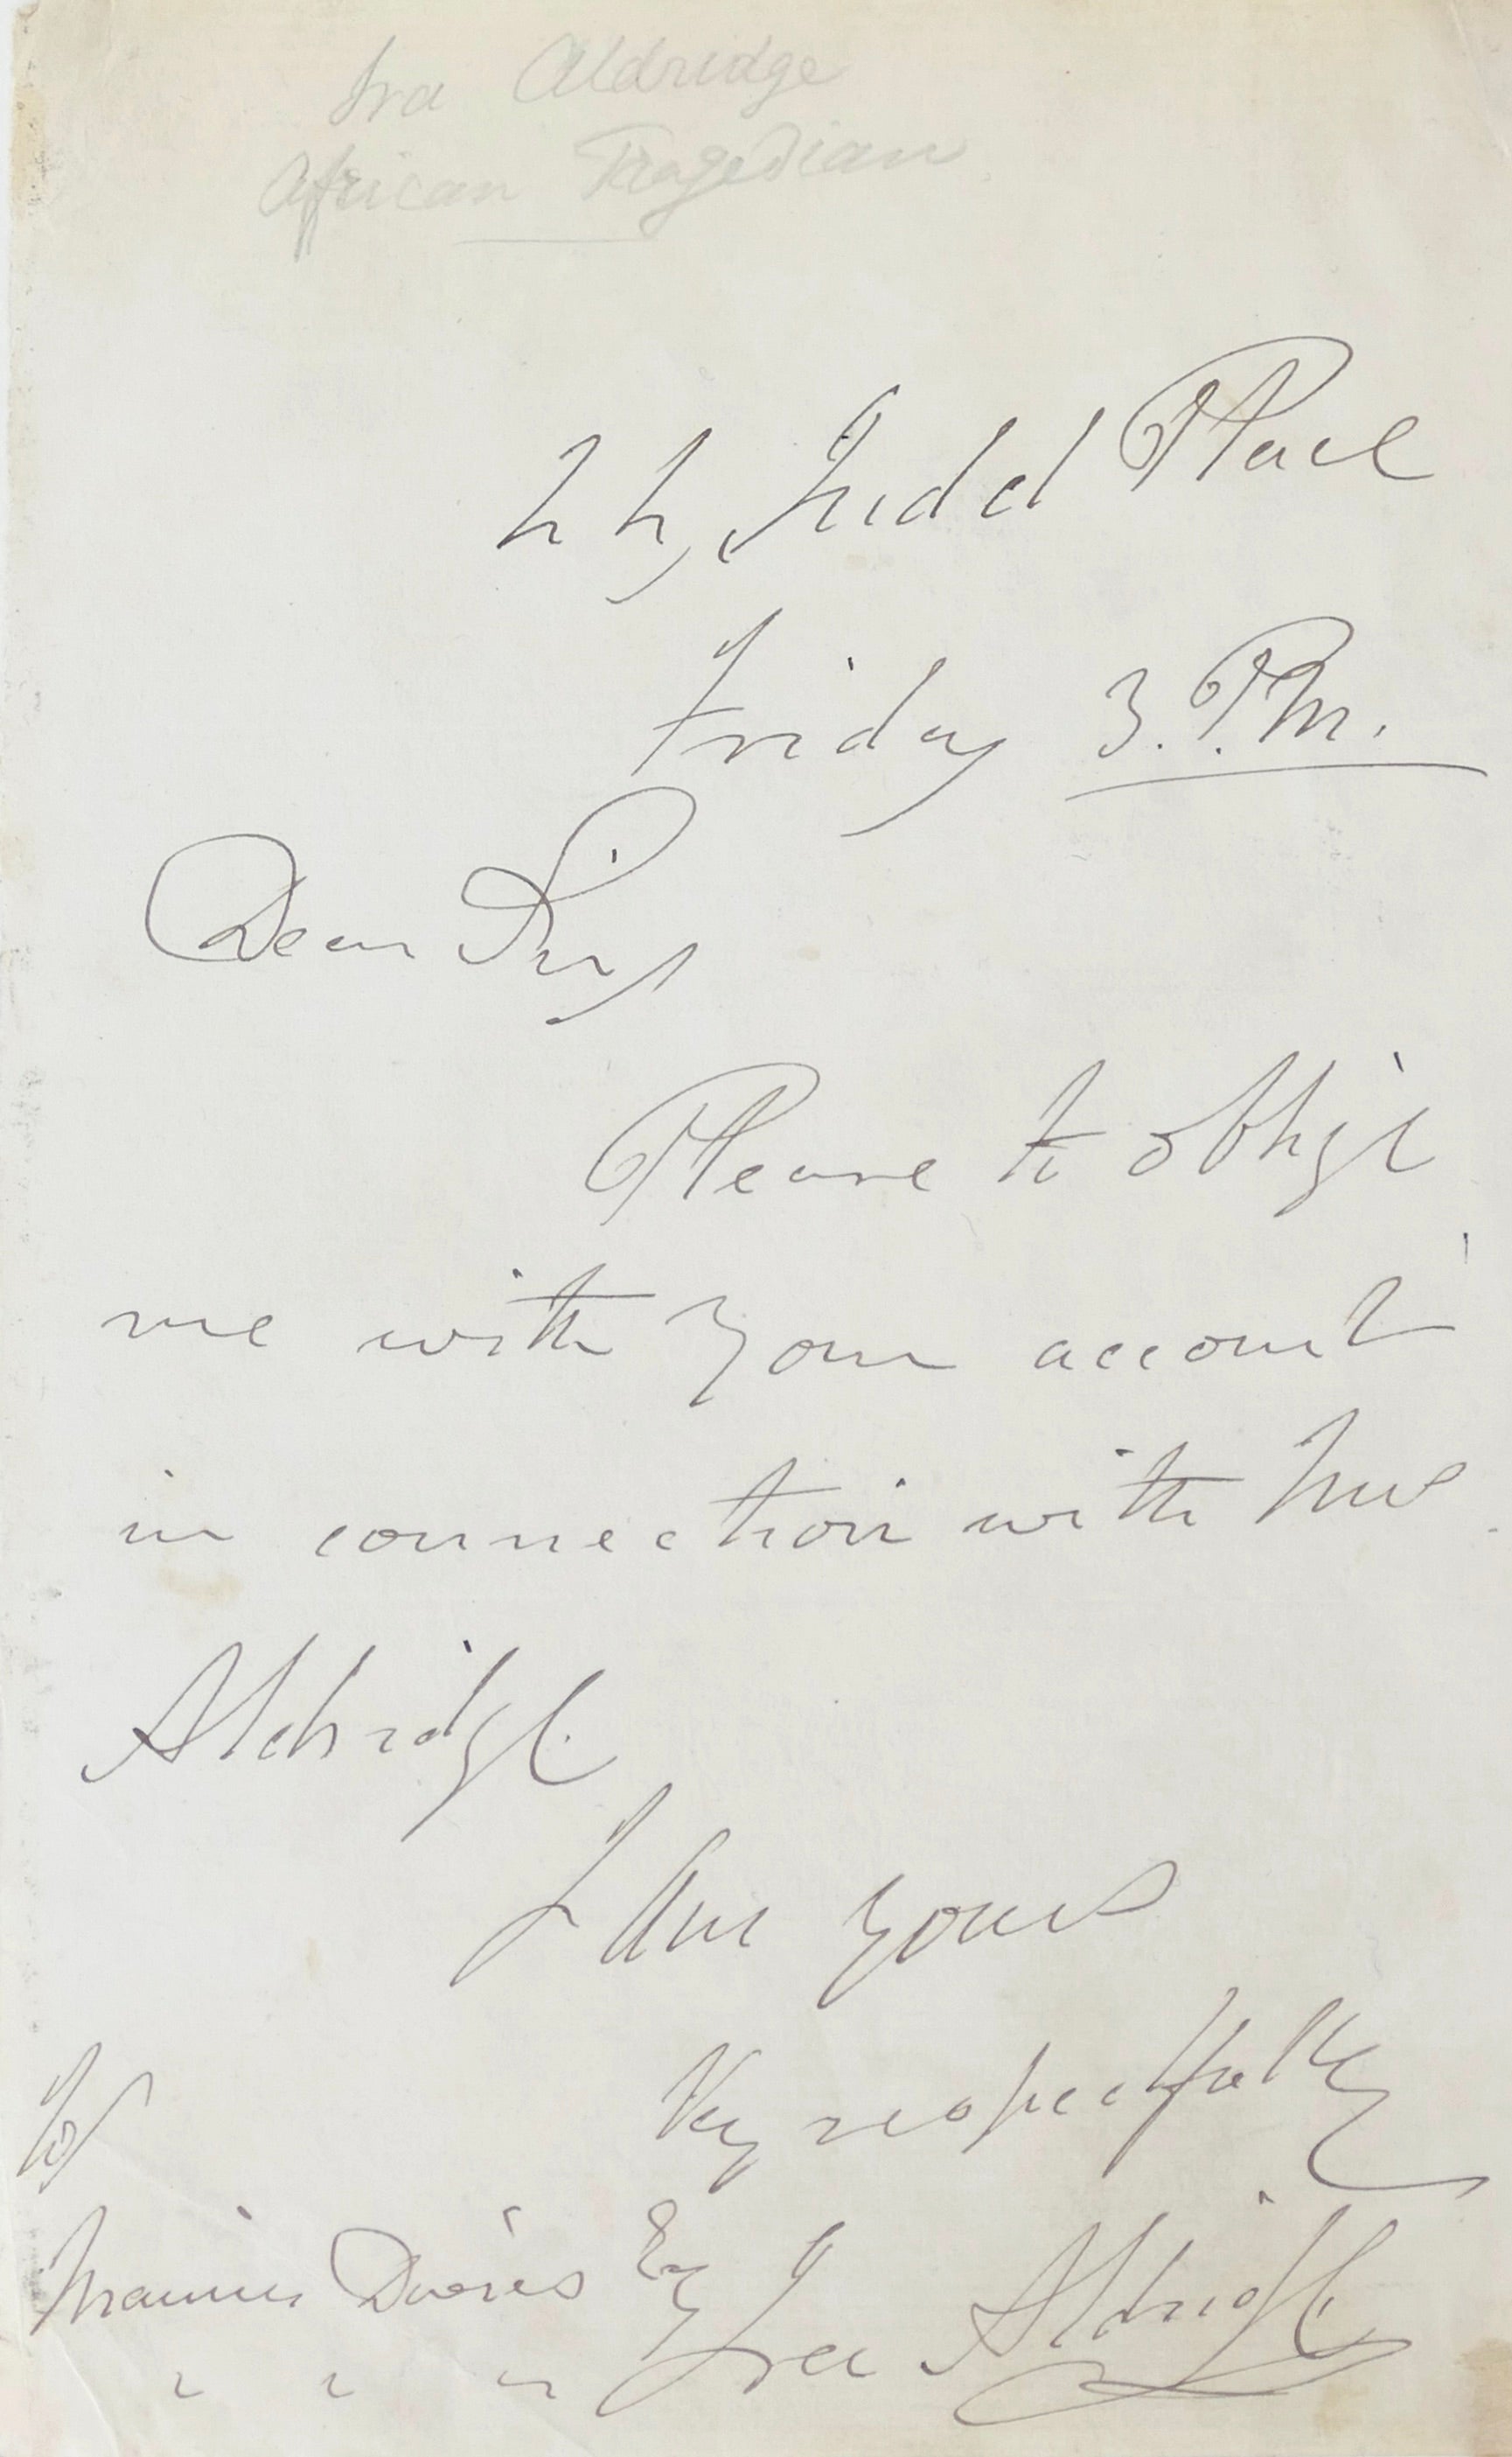 Ira Aldridge
African Tragedian
Judd Place
Friday 3. P.M.
Dear Sir,
Please to oblige
me with your account
in connection with Mrs
Aldridge.
I Am yours
Vy respectfully
To
Davies Esq
Ira Aldridge